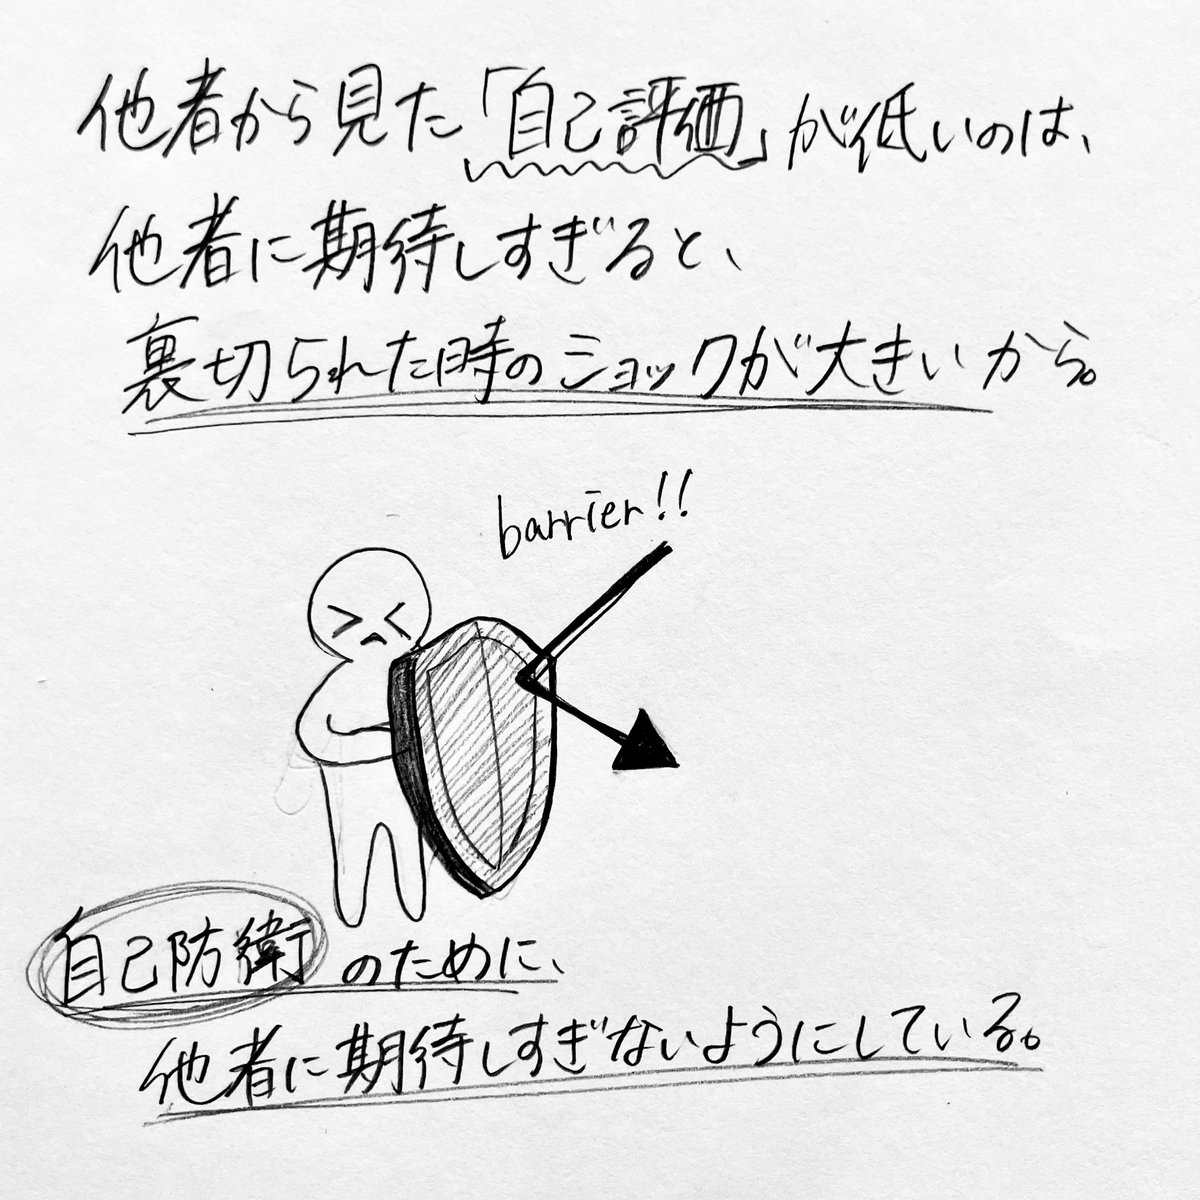 他者から見た「自己評価」が低いのは、
他者に期待しすぎると、
裏切られた時のショックが大きいから。
barrier!!
自己防衛のために、
他者に期待しすぎないようにしている。